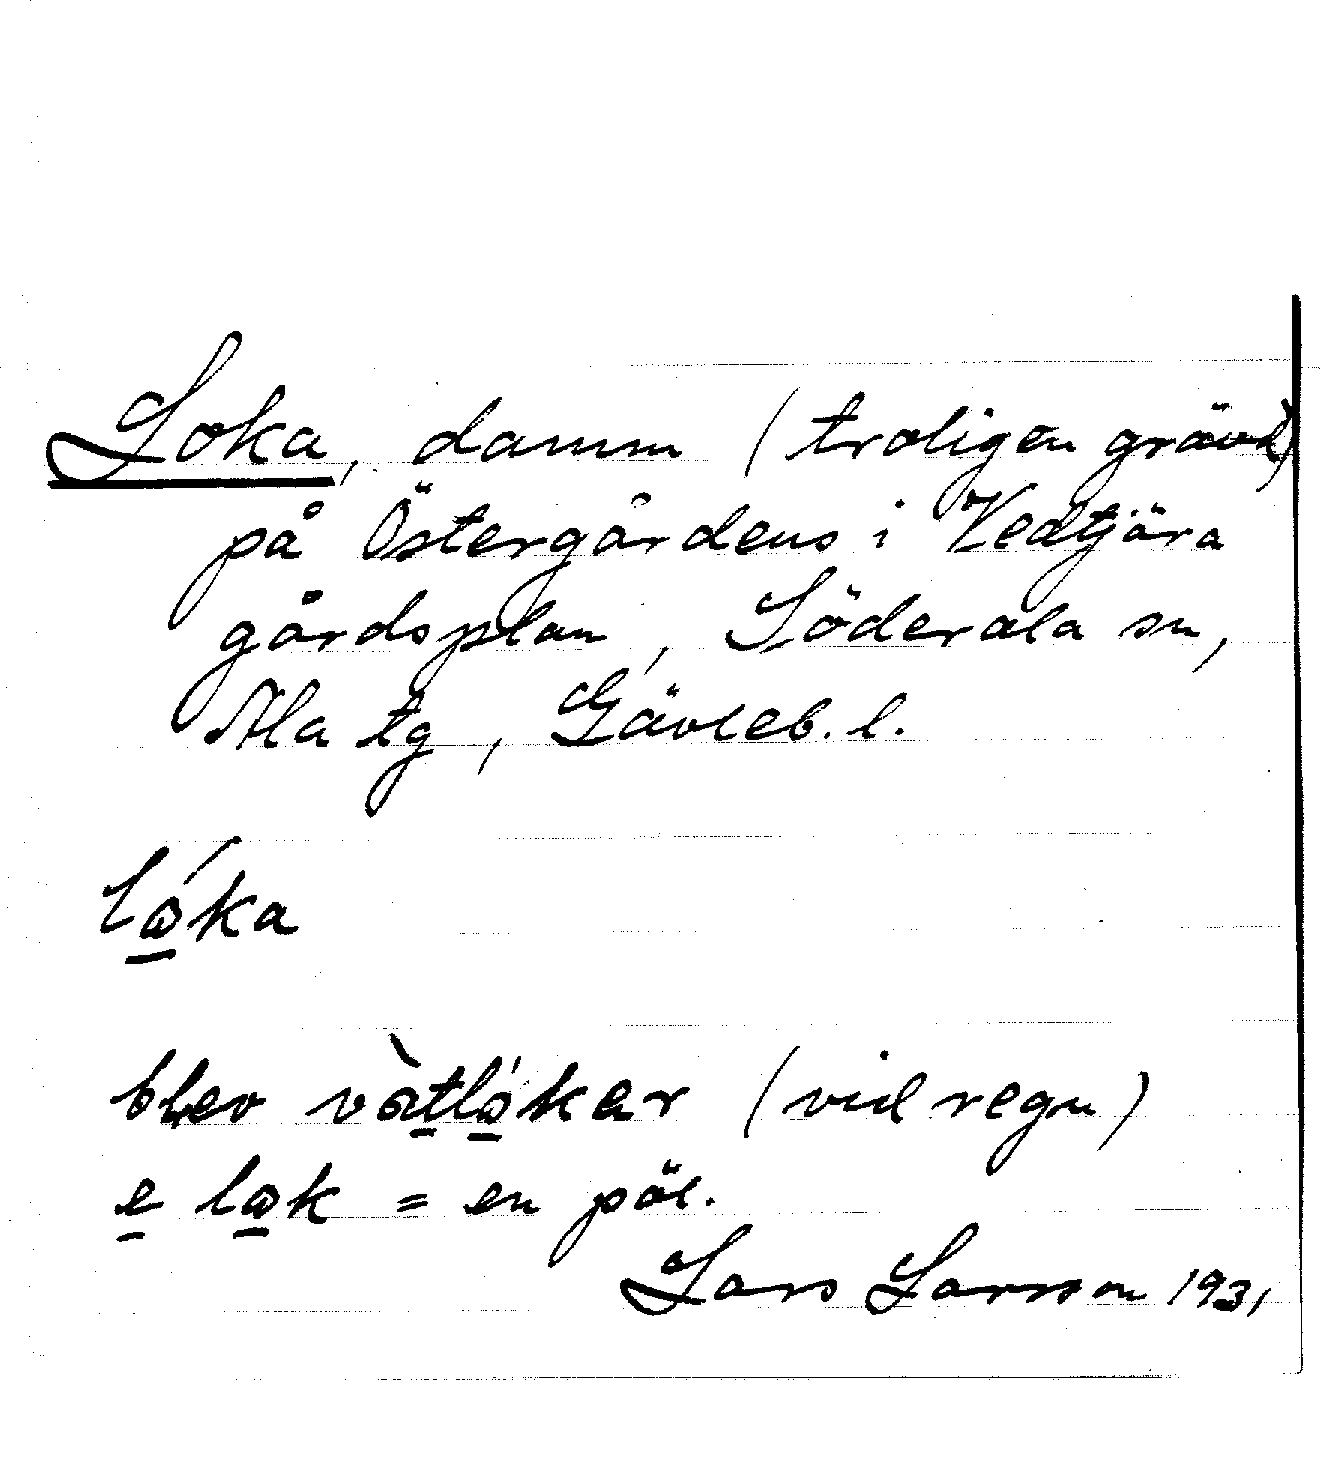 Loka, damm (troligen grävd)
på Östergårdens i Vedtjära
gårdsplan, Söderala sn,
Ala tg, Gävleb. l.
lǿka
blev vàtlǿker (vid regn)
e løk = en pöl.
Lars Larsson 1931